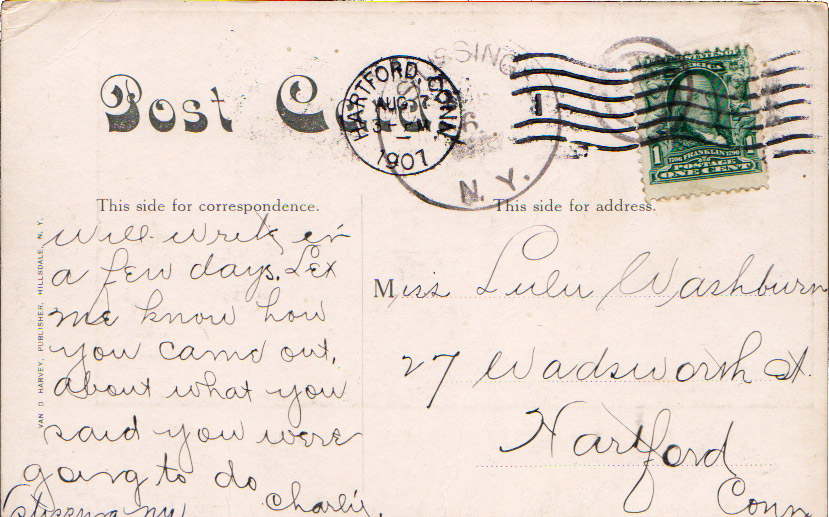 Post
HARTFORD, CONN.
AUG 7
1907
SING
N. Y.
1
1706 FRANKLIN 1790
POSTAGE
ONE CENT
This side for correspondence.
This side for address.
VAN D HARVEY, PUBLISHER, HILLSDALE, N. Y.
Will write in
a few days. Let
me know how
you came out,
about what you
said you were
going to do
Charlie.
Miss Lulu Washburn
27 Wadsworth St.
Hartford
Conn